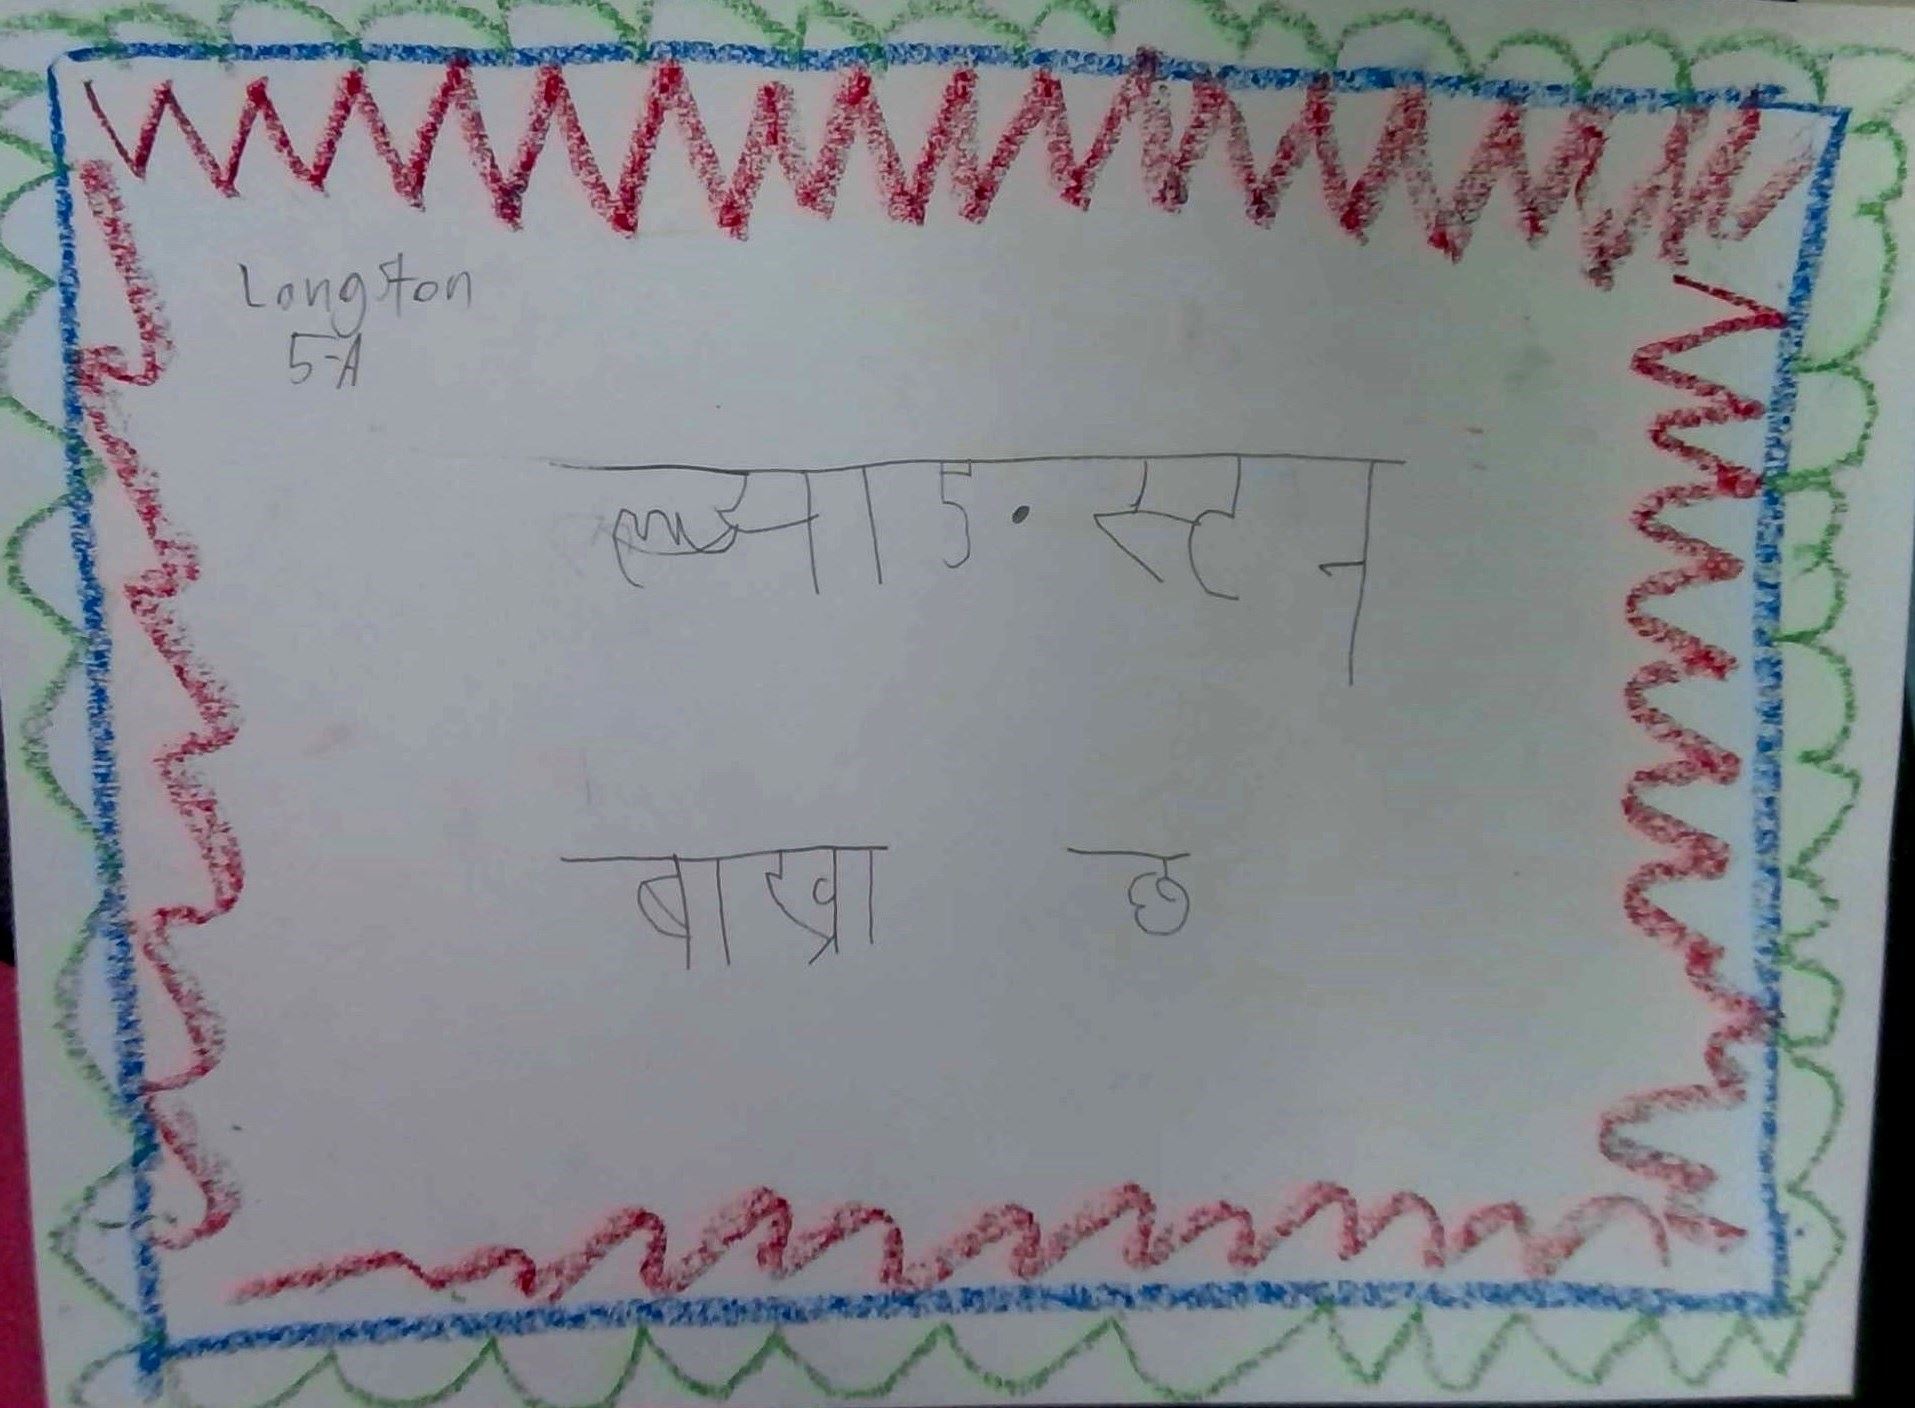 Langston
5-A
ल्याङस्टन
बाख्रा छ